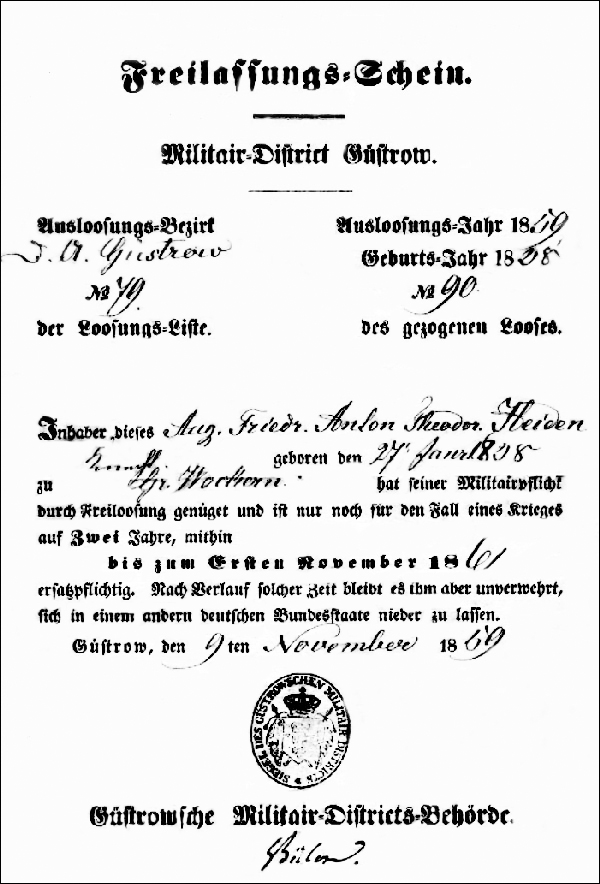 Freilassungs-Schein.
Militair-District Güstrow.
Ausloosungs-Bezirk
D. A. Güstrow
№ 79
der Loosungs-Liste.
Ausloosungs-Jahr 1859
Geburts-Jahr 1838
№ 90
des gezogenen Looses.
Inhaber dieses Aug. Friedr. Anton Theodor Heiden
Knecht geboren den 27 Januar 1838
zu Gr. Wockern hat seiner Militairpflicht
durch Freiloosung genüget und ist nur noch für den Fall eines Krieges
auf Zwei Jahre, mithin
bis zum Ersten November 1861
ersatzpflichtig. Nach Verlauf solcher Zeit bleibt es ihm aber unverwehrt,
sich in einem andern deutschen Bundesstaate nieder zu lassen.
Güstrow, den 9ten November 1859
SIEGEL DES GÜSTROWSCHEN MILITAIR DISTRICTS
Güstrowsche Militair-Districts-Behörde.
Bülow.